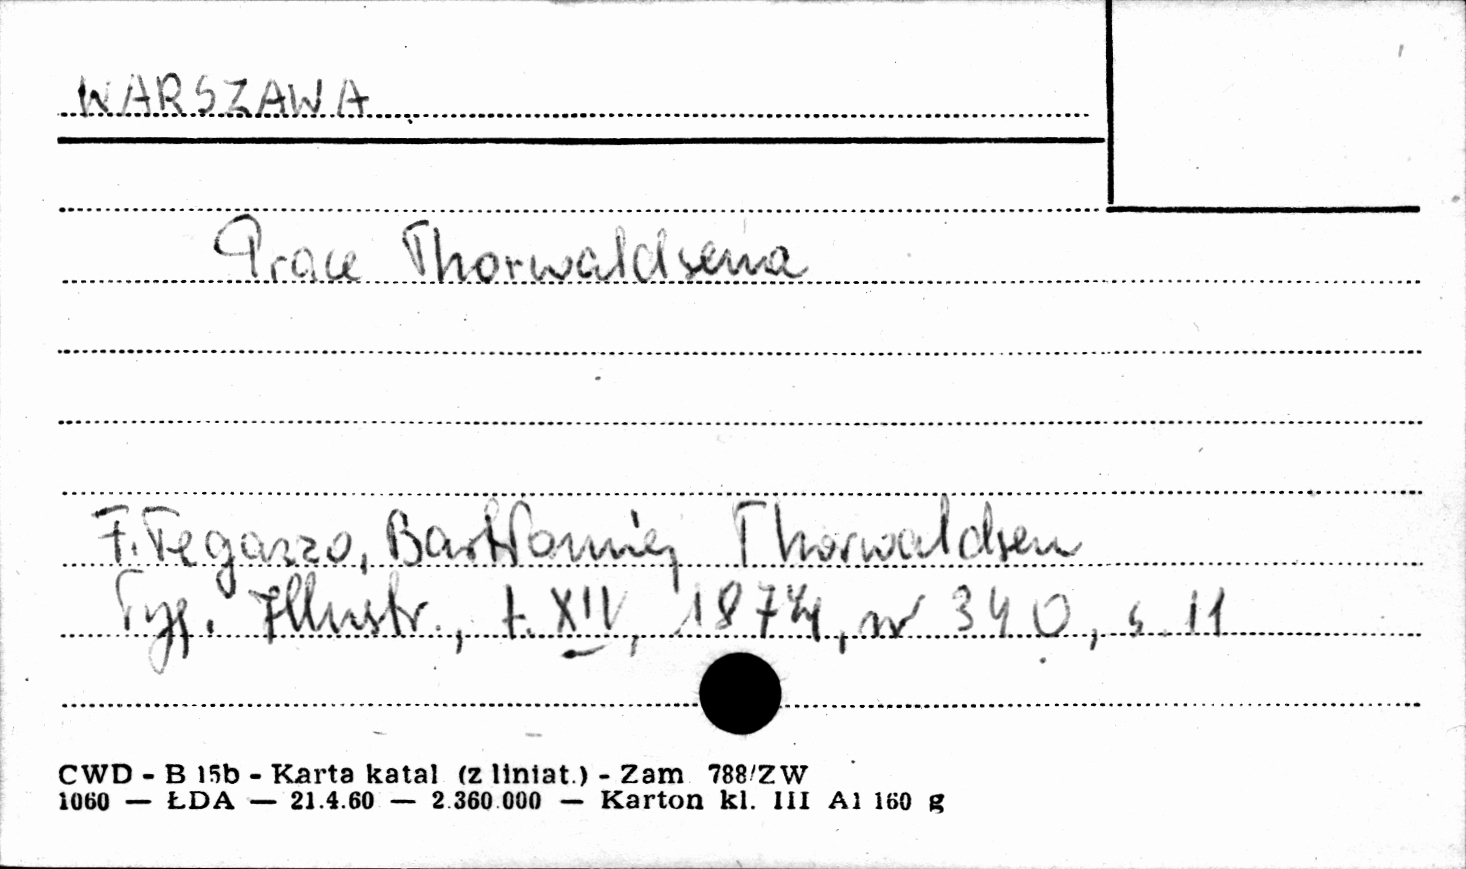 WARSZAWA
Prace Thorwaldsena
F. Tegazzo, Bartłomiej Thorwaldsen
Tyg. Illustr., t. XIV, 1874, nr 340, s. 11
CWD - B 15b - Karta katal (z liniat.) - Zam 788/ZW
1060 — ŁDA — 21.4.60 — 2.360.000 — Karton kl. III A1 160 g